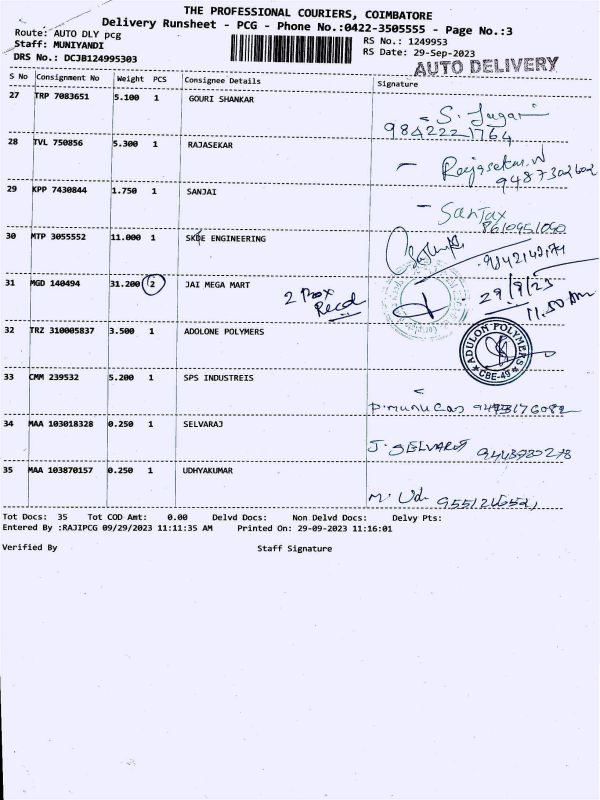 THE PROFESSIONAL COURIERS, COIMBATORE
Delivery Runsheet - PCG - Phone No.:0422-3505555 - Page No.:3
Route: AUTO DLY pcg
RS No.: 1249953
Staff: MUNIYANDI
RS Date: 29-Sep-2023
DRS No.: DCJB124995303
AUTO DELIVERY
S No Consignment No Weight PCS Consignee Details Signature
27 TRP 7083651 5.100 1 GOURI SHANKAR
9842221764
28 TVL 750856 5.300 1 RAJASEKAR
Rajasekar.N
9487302602
29 KPP 7430844 1.750 1 SANJAI
Sanjay
8610951090
30 MTP 3055552 11.000 1 SKDE ENGINEERING
31 MGD 140494 31.200 2 JAI MEGA MART
2 Box
Recd
29/9/23
11.50 Am
32 TRZ 310005837 3.500 1 ADOLONE POLYMERS
ADULON POLYMERS
CBE-49
33 CMM 239532 5.200 1 SPS INDUSTREIS
34 MAA 103018328 0.250 1 SELVARAJ
J. SELVARAJ
35 MAA 103870157 0.250 1 UDHYAKUMAR
M. Udh
Tot Docs: 35 Tot COD Amt: 0.00 Delvd Docs: Non Delvd Docs: Delvy Pts:
Entered By :RAJIPCG 09/29/2023 11:11:35 AM Printed On: 29-09-2023 11:16:01
Verified By Staff Signature